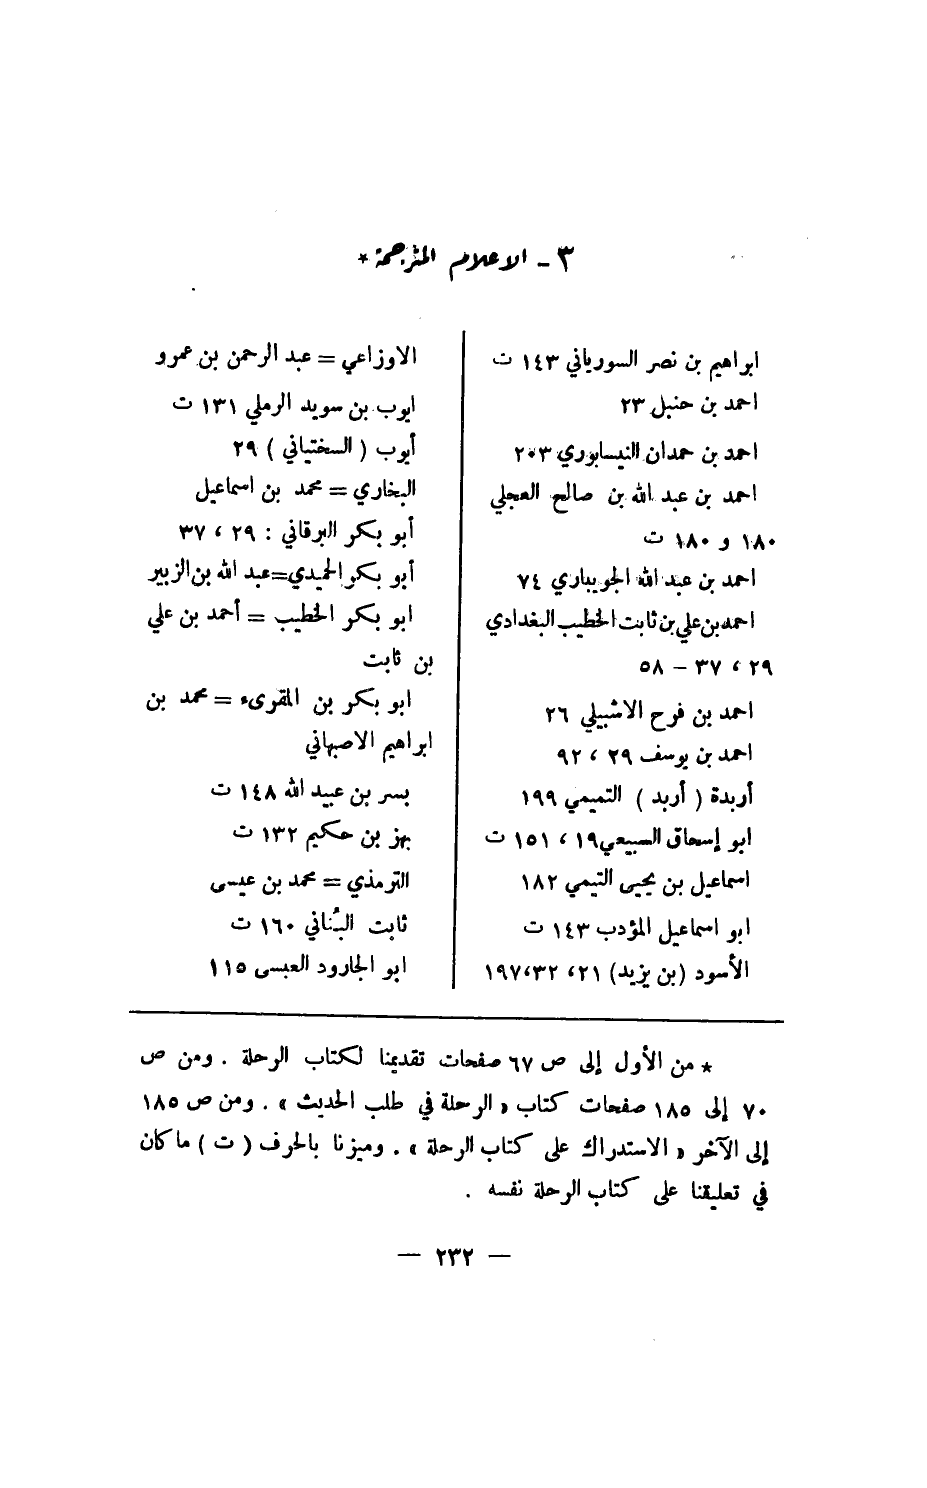 ٣ ـ الاعلام المترجمة *
ابراهيم بن نصر السورياني ١٤٣ ت
احمد بن حنبل ٢٣
احمد بن حمدان النيسابوري ٢٠٣
احمد بن عبد الله بن صالح العجلي
١٨٠ و ١٨٠ ت
احمد بن عبد الله الجويباري ٧٤
احمد بن علي بن ثابت الخطيب البغدادي
٢٩ ، ٣٧ – ٥٨
احمد بن فرح الاشبيلي ٢٦
احمد بن يوسف ٢٩ ، ٩٢
أربدة ( أربد ) التميمي ١٩٩
ابو إسحاق السبيعي ١٩ ، ١٥١ ت
اسماعيل بن يحيى التيمي ١٨٢
ابو اسماعيل المؤدب ١٤٣ ت
الأسود (بن يزيد) ٢١، ٣٢، ١٩٧
الاوزاعي = عبد الرحمن بن عمرو
ايوب بن سويد الرملي ١٣١ ت
أيوب ( السختياني ) ٢٩
البخاري = محمد بن اسماعيل
أبو بكر البرقاني : ٢٩ ، ٣٧
أبو بكر الحميدي = عبد الله بن الزبير
ابو بكر الخطيب = أحمد بن علي
بن ثابت
ابو بكر بن المقرىء = محمد بن
ابراهيم الاصبهاني
بسر بن عبيد الله ١٤٨ ت
بهز بن حكيم ١٣٢ ت
الترمذي = محمد بن عيسى
ثابت البُناني ١٦٠ ت
ابو الجارود العبسى ١١٥
* من الأول إلى ص ٦٧ صفحات تقديمنا لكتاب الرحلة . ومن ص
٧٠ إلى ١٨٥ صفحات كتاب « الرحلة في طلب الحديث » . ومن ص ١٨٥
إلى الآخر « الاستدراك على كتاب الرحلة » . وميزنا بالحرف ( ت ) ما كان
في تعليقنا على كتاب الرحلة نفسه .
— ٢٣٢ —